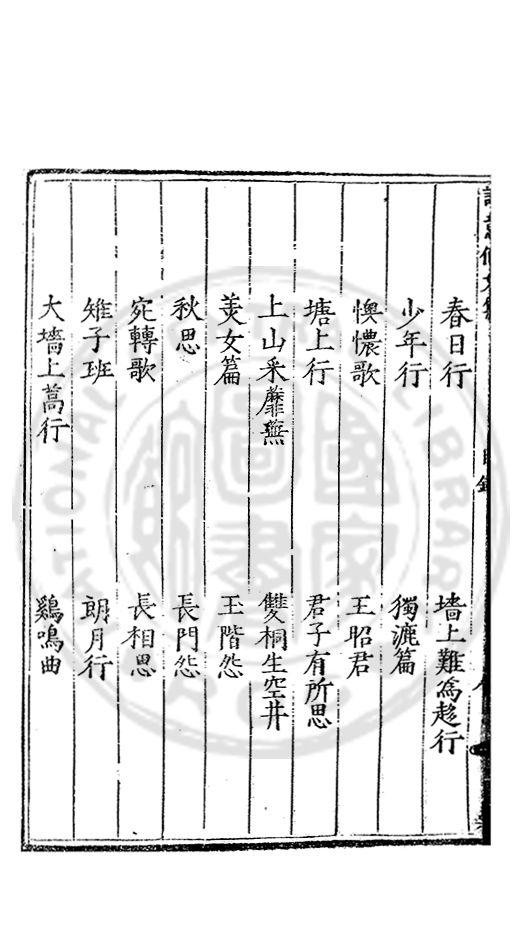 春日行
墻上難為趍行
少年行
獨漉篇
懊憹歌
王昭君
塘上行
君子有所思
上山釆蘼蕪
雙桐生空井
美女篇
玉階怨
秋思
長門怨
宛轉歌
長相思
雉子班
朗月行
大墻上蒿行
鷄鳴曲